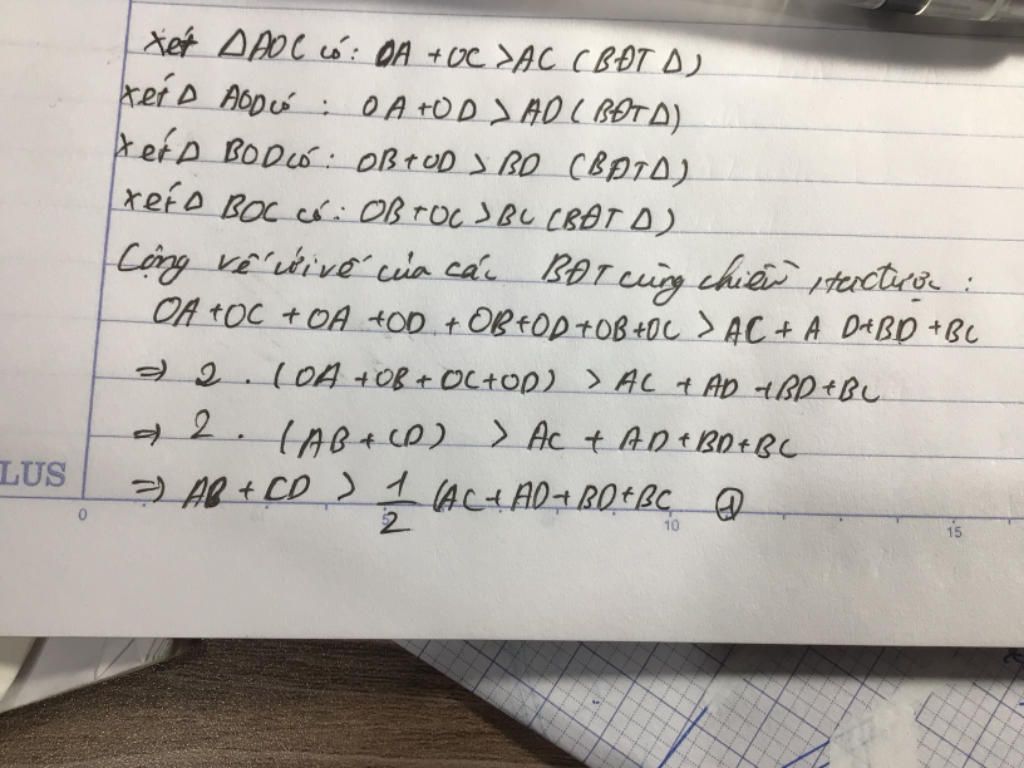 Xét Δ AOC có: OA + OC > AC (BĐT Δ)
Xét Δ AOD có: OA + OD > AD (BĐT Δ)
Xét Δ BOD có: OB + OD > BD (BĐT Δ)
Xét Δ BOC có: OB + OC > BC (BĐT Δ)
Cộng vế với vế của các BĐT cùng chiều, ta được:
OA + OC + OA + OD + OB + OD + OB + OC > AC + AD + BD + BC
⇒ 2 . (OA + OB + OC + OD) > AC + AD + BD + BC
⇒ 2 . (AB + CD) > AC + AD + BD + BC
LUS
⇒ AB + CD > 1/2 (AC + AD + BD + BC ①
0 5 10 15